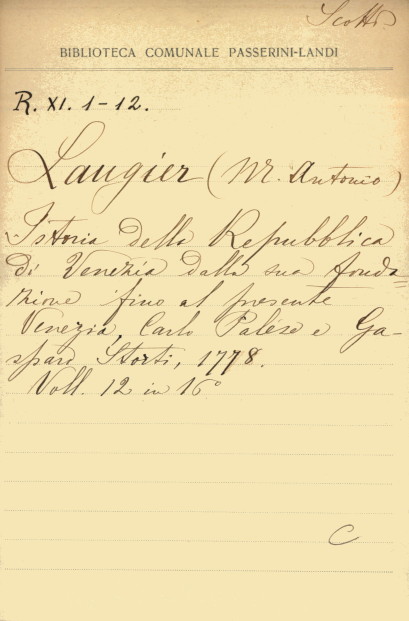 Scotti
BIBLIOTECA COMUNALE PASSERINI-LANDI
R. XI. 1-12.
Laugier (M. Antonio)
Istoria della Repubblica
di Venezia dalla sua fonda=
zione fino al presente
Venezia, Carlo Palese e Ga-
sparo Storti, 1778.
Voll. 12 in 16°
C